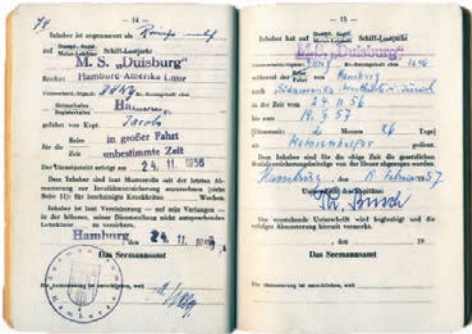 — 14 —
Inhaber ist angemustert als
auf Dampf- Segel- Motor-Leichter Schiff-Lustjacht
M. S. „Duisburg"
Reeder: Hamburg-Amerika Linie
Unterscheidungssignal:
Heimathafen Hamburg
geführt von Kapt. Jacobs
für die Reise in großer Fahrt
für die Zeit unbestimmte Zeit
Der Dienstantritt erfolgt am 24. 11. 1956
Dem Inhaber sind laut Musterrolle seit der letzten Ab-
musterung zur Invalidenversicherung anzurechnen (siehe
Seite 11): für bescheinigte Krankheiten Wochen.
Inhaber ist laut Versicherung — auf sein Verlangen —
in der höheren, seiner Dienststellung nicht entsprechenden
Lohnklasse zu versichern.
Hamburg, den 24. 11. 1956
Das Seemannsamt
Die Abmusterung ist unterblieben, weil
— 15 —
Inhaber hat auf Dampf- Segel- Motor-Leichter Schiff-Lustjacht
M.S. „Duisburg"
während der Reise Fahrt von Hamburg
nach Südamerika
in der Zeit vom 24. 11. 56
bis zum 19. 2. 57
[Dienstzeit: 2 Monate 26 Tage]
als gedient.
Dem Inhaber sind für die obige Zeit die gesetzlichen
Sozialversicherungsbeiträge von der Heuer abgezogen worden.
Hamburg, den 18. Februar 57
Unterschrift des Kapitäns:
Th. Busch
Die vorstehende Unterschrift wird beglaubigt und die
erfolgte Abmusterung hierdurch vermerkt.
, den 19
Das Seemannsamt
Die Abmusterung ist unterblieben, weil